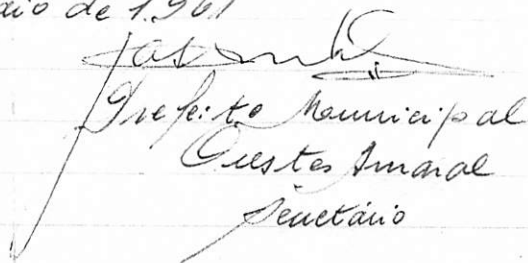 de 1.961
Prefeito Municipal
Orestes Amaral
Secretário